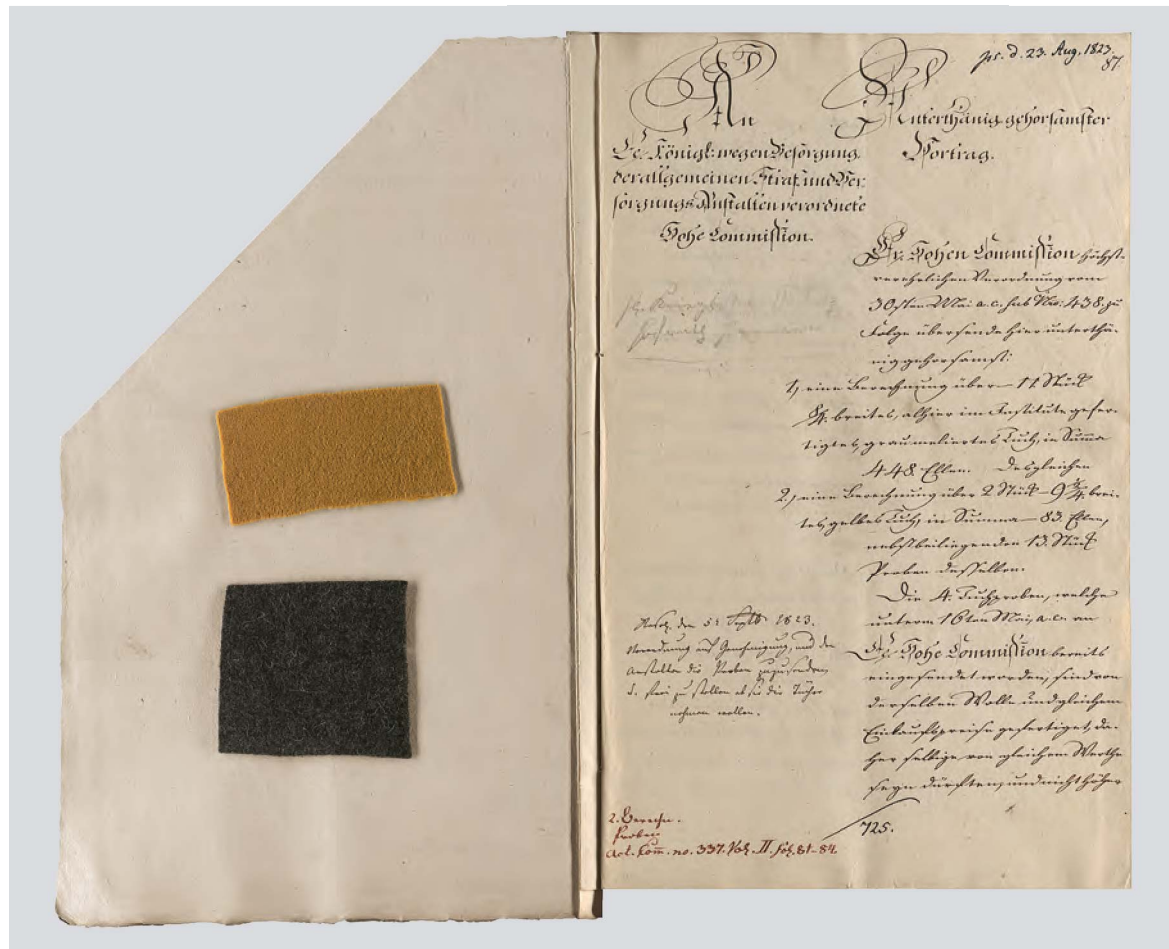 ps. d. 23. Aug. 1823.
87.
An
Se. Königl: wegen Besorgung
der allgemeinen Straf und Ver:
sorgungs Anstalten verordnete
Hohe Commission.
Unterthänig gehorsamster
Vortrag.
Er. Hohen Commission höchst-
verehrlichen Verordnung vom
30sten Mai a. c. sub No: 438. zu
Folge übersende hier unterthä-
nig gehorsamst:
1, eine Berechnung über 11 Stück
breites, allhier im Institute gefer-
tigtes, grau meliertes Tuch, in Summa
448. Ellen. Desgleichen
2., eine Berechnung über 2 Stück 9/4. brei-
tes, gelbes Tuch, in Summa 83. Ellen,
nebst beiliegenden 13. Stück
Proben desselben.
Die 4. Tuchproben, welche
unterm 16ten Mai, a. c. an
Ew. Hohe Commission bereits
eingesendet worden, sind von
derselben Wolle und gleichem
Einkaufspreise gefertiget, da-
her selbige von gleichem Werthe
seyn dürften, und nicht höher
725.
Resol. den 5: Septb 1823.
Verordnung auf Genehmigung, und den
Anstalten die Proben zuzusenden
u. frei zu stellen ob sie die Tücher
nehmen wollen.
2. Berechn.
Proben
Act. Com. no. 337. Vol. II. fol. 81-84.